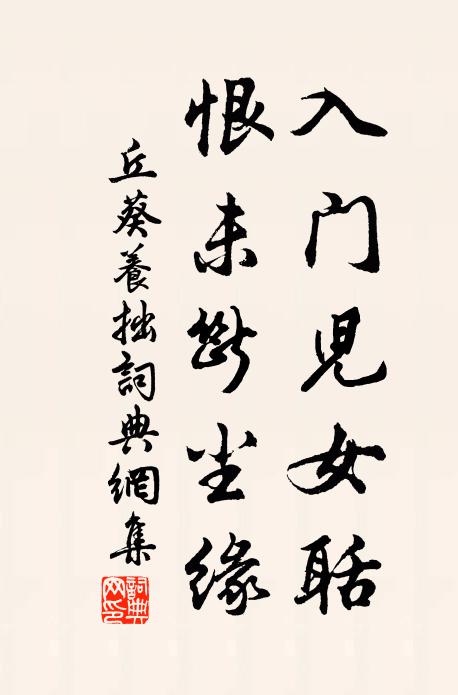 入门児女聒
恨未斷尘缘
丘葵養拙詞典網集
詞典网印